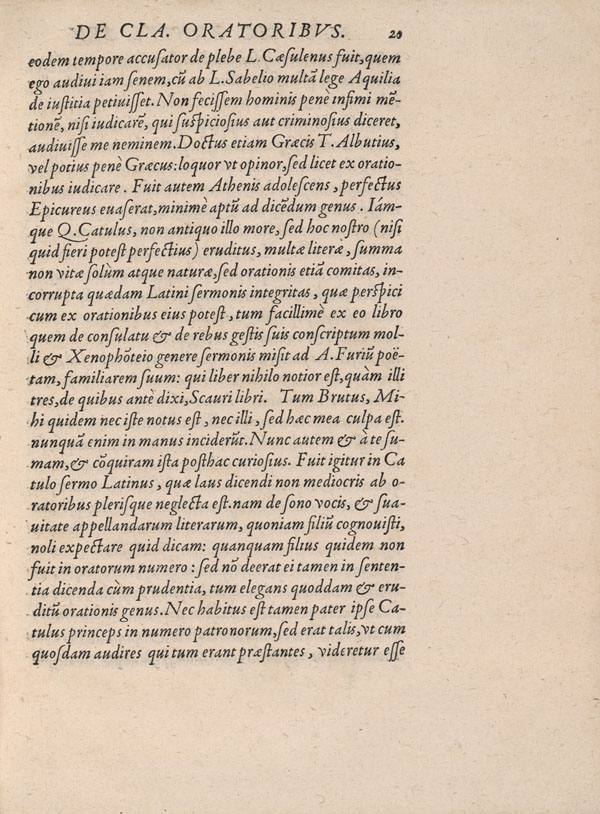 DE CLA. ORATORIBVS. 20
eodem tempore accuſator de plebe L.Cæſulenus fuit,quem
ego audiui iam ſenem,cũ ab L.Sabelio multã lege Aquilia
de iuſtitia petiuiſſet. Non feciſſem hominis penè infimi mẽ-
tionẽ, niſi iudicarẽ, qui ſuſpicioſius aut criminoſius diceret,
audiuiſſe me neminem.Doctus etiam Græcis T. Albutius,
vel potius penè Græcus:loquor vt opinor,ſed licet ex oratio-
nibus iudicare. Fuit autem Athenis adoleſcens, perfectus
Epicureus euaſerat,minimè aptũ ad dicẽdum genus. Iám-
que Q.Catulus, non antiquo illo more, ſed hoc noſtro (niſi
quid fieri poteſt perfectius) eruditus, multæ literæ, ſumma
non vitæ ſolùm atque naturæ,ſed orationis etiã comitas, in-
corrupta quædam Latini ſermonis integritas, quæ perſpici
cum ex orationibus eius poteſt, tum facillimè ex eo libro
quem de conſulatu & de rebus geſtis ſuis conſcriptum mol-
li & Xenophõteio genere ſermonis miſit ad A.Furiũ poë-
tam, familiarem ſuum: qui liber nihilo notior eſt,quàm illi
tres,de quibus antè dixi,Scauri libri. Tum Brutus, Mi-
hi quidem nec iſte notus eſt, nec illi, ſed hæc mea culpa eſt.
nunquã enim in manus inciderũt.Nunc autem & à te ſu-
mam,& cõquiram iſta poſthac curioſius. Fuit igitur in Ca
tulo ſermo Latinus, quæ laus dicendi non mediocris ab o-
ratoribus pleriſque neglecta eſt.nam de ſono vocis, & ſua-
uitate appellandarum literarum, quoniam filiũ cognouiſti,
noli expectare quid dicam: quanquam filius quidem non
fuit in oratorum numero: ſed nõ deerat ei tamen in ſenten-
tia dicenda cùm prudentia, tum elegans quoddam & eru-
ditũ orationis genus.Nec habitus eſt tamen pater ipſe Ca-
tulus princeps in numero patronorum,ſed erat talis,vt cum
quoſdam audires qui tum erant præſtantes, videretur eſſe